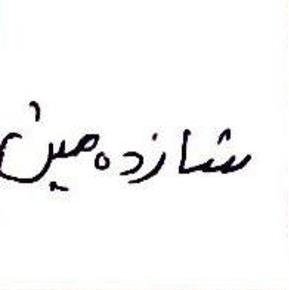 شازده مین